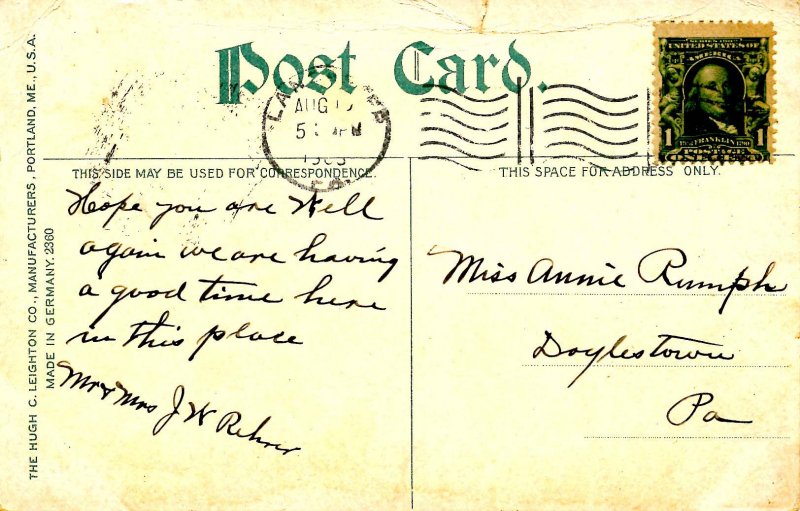 Post Card.
THE HUGH C. LEIGHTON CO., MANUFACTURERS, PORTLAND, ME., U.S.A.
MADE IN GERMANY. 2360
AUG
5
PM
PA.
SERIES 1902
UNITED STATES OF
AMERICA
1 FRANKLIN 1
POSTAGE
THIS SIDE MAY BE USED FOR CORRESPONDENCE.
THIS SPACE FOR ADDRESS ONLY.
Hope you are Well
again we are having
a good time here
in this place
Mr & Mrs J W Rehrer
Miss Annie Rumph
Doylestown
Pa